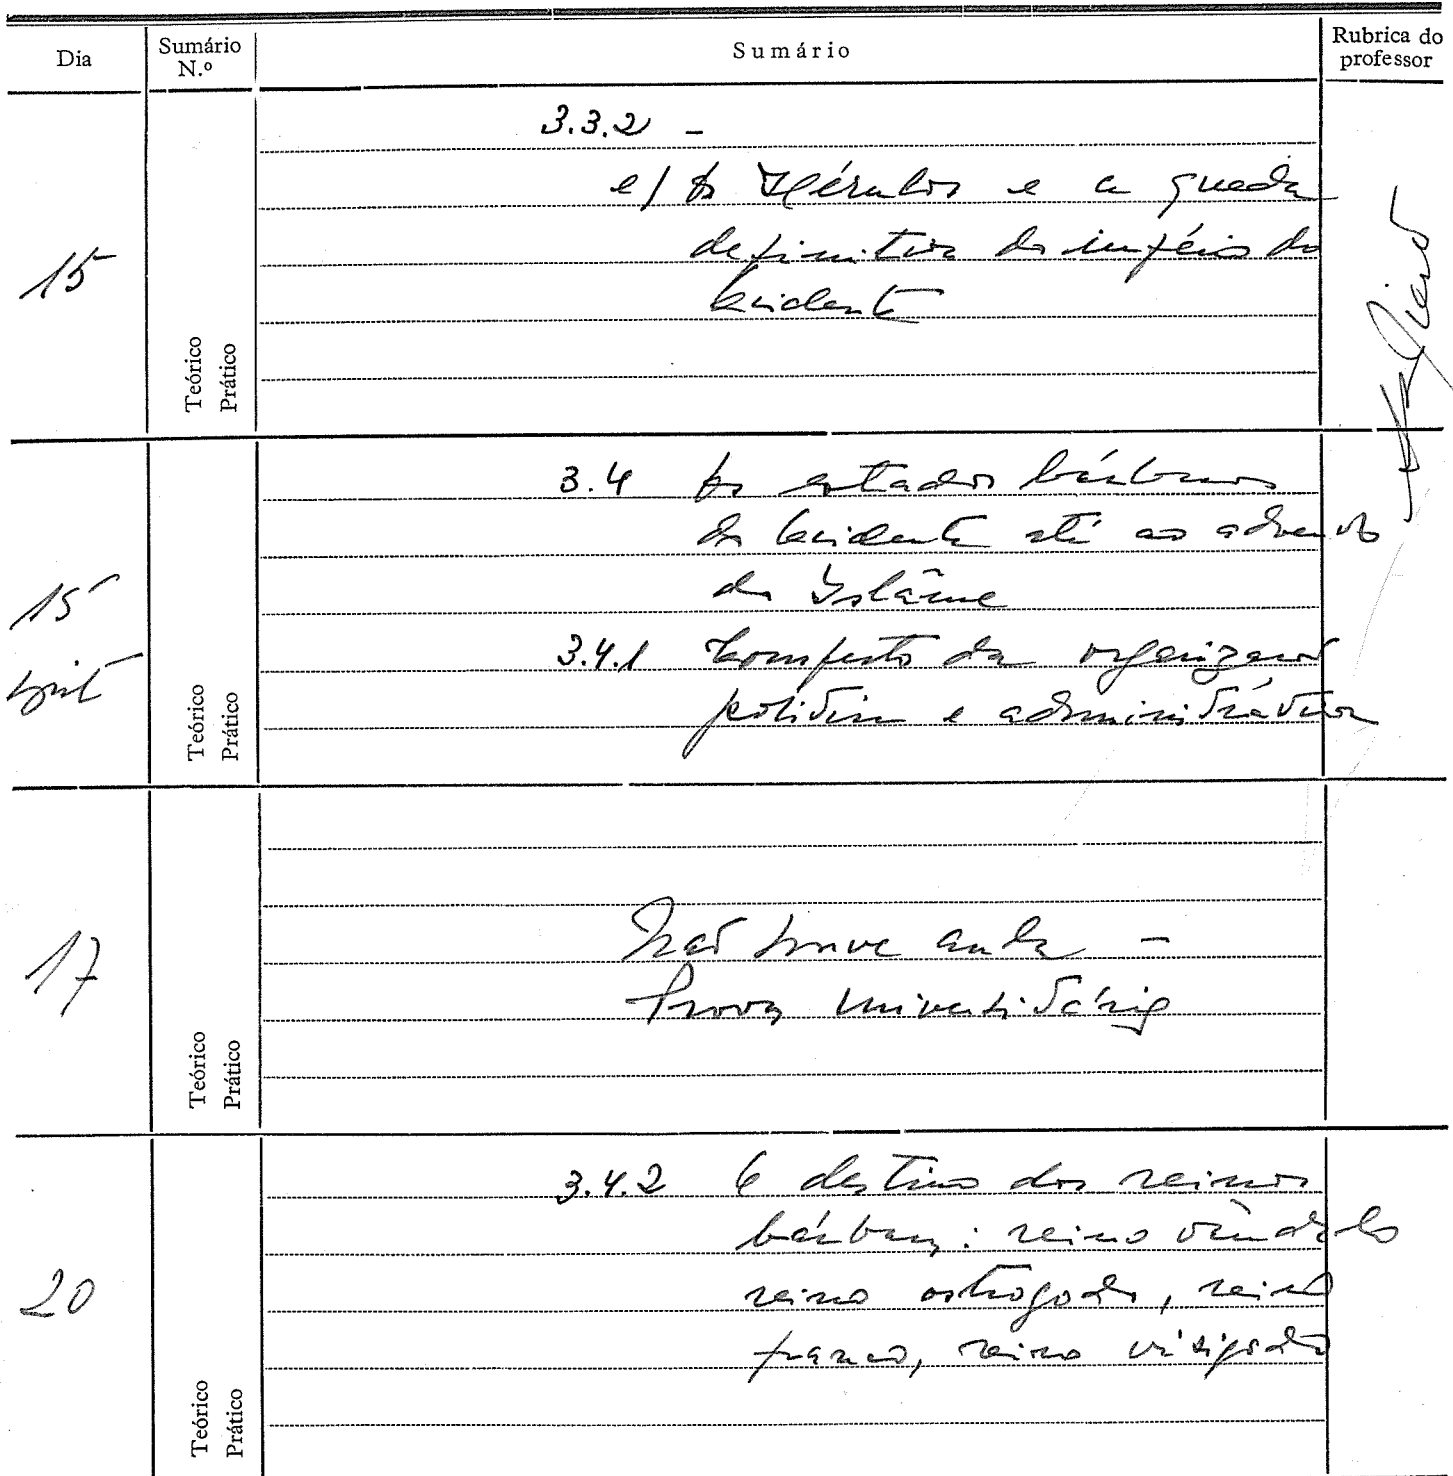 Dia
Sumário N.º
Sumário
Rubrica do professor
15
Teórico
Prático
3.3.2 -
e) Os Hérulos e a queda
definitiva do império do
Ocidente
15
Teórico
Prático
3.4 Os estados bárbaros
do Ocidente até ao advento
do Islâme
3.4.1 da organização
política e administrativa
17
Teórico
Prático
Não houve aula -
Prova Universitária
20
Teórico
Prático
3.4.2 O destino dos reinos
bárbaros: reino vândalo
reino ostrogodo, reino
franco, reino visigodo